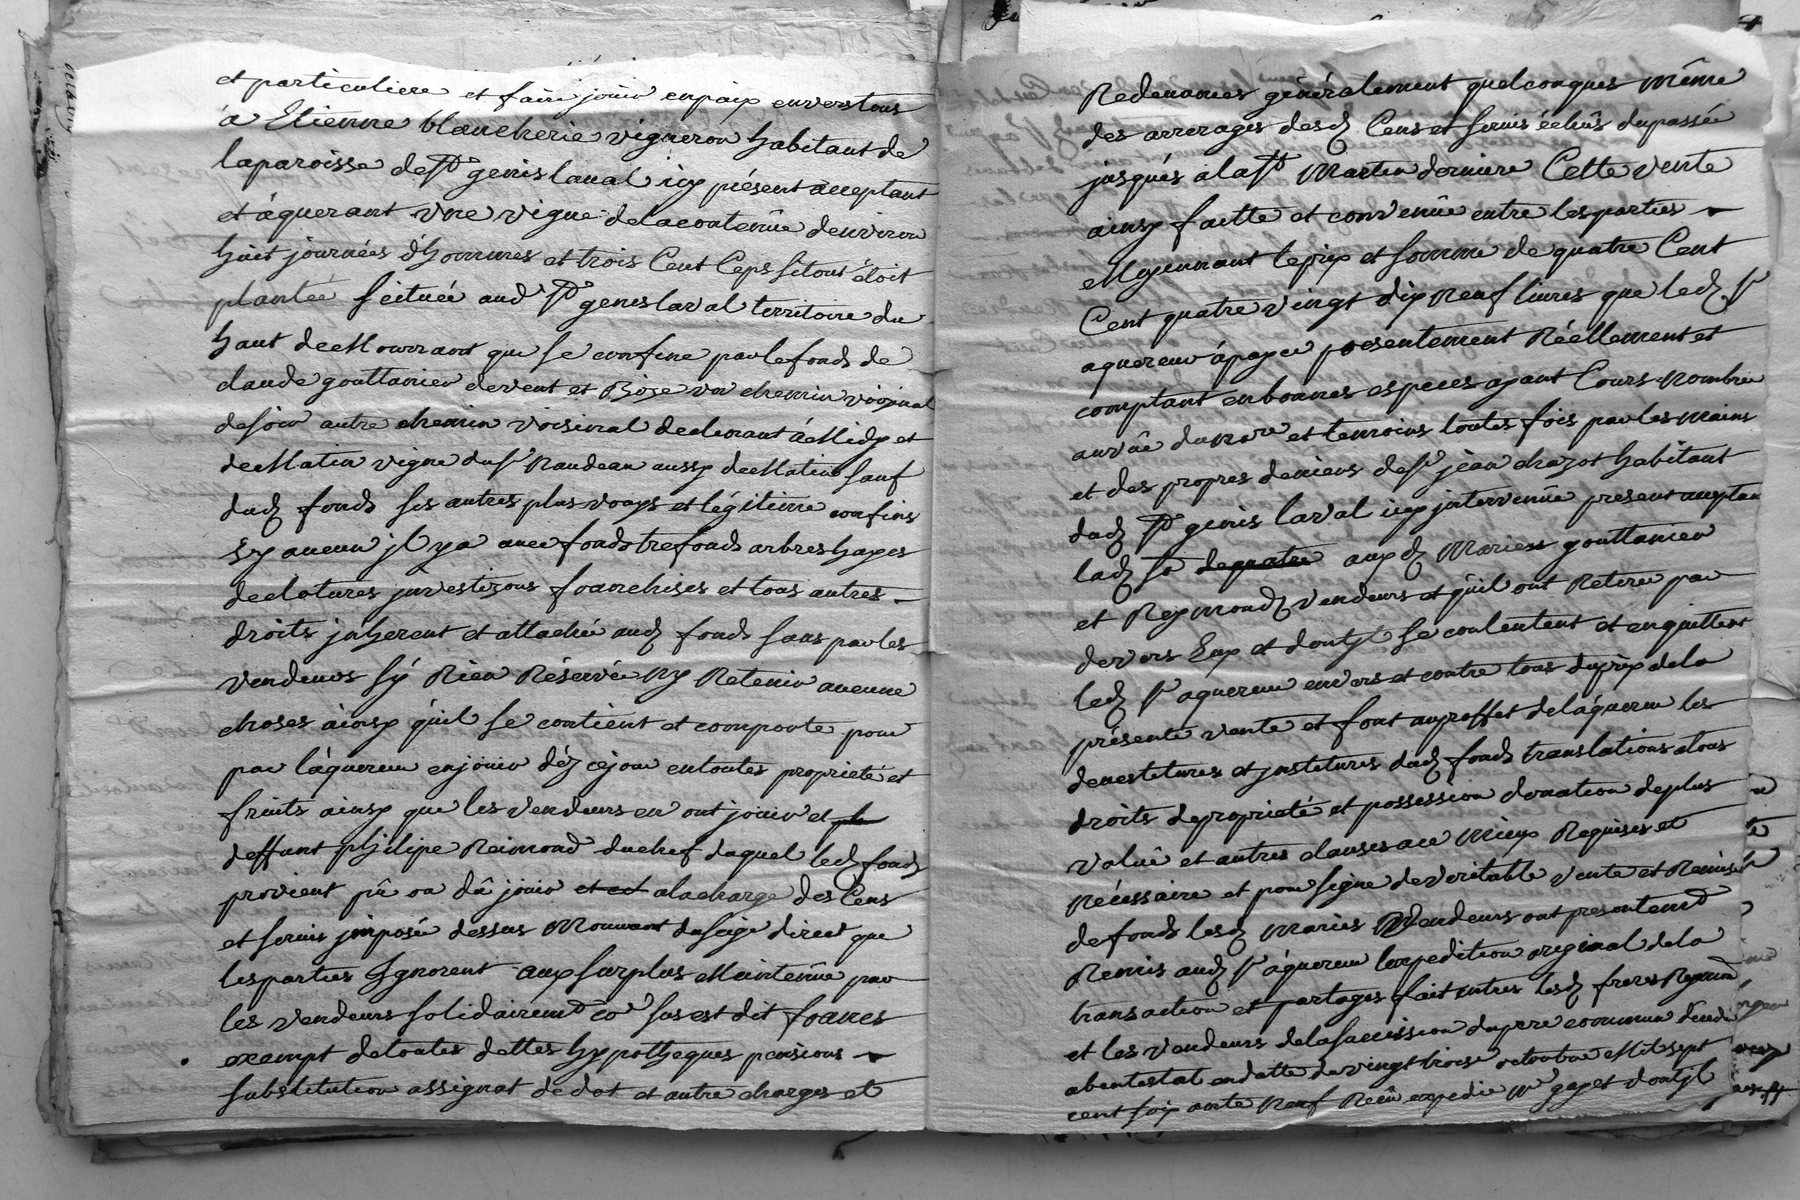 et particuliere et faire jouir en paix envers tous
à Etienne blancherie vigneron habitant de
la paroisse de St genis laval icy présent acceptant
et áquerant une vigne de la contenüe d'environ
huit journées d'hommes et trois Cent Ceps si tout étoit
plantée scituée aud St genis laval territoire du
haut de Mourrant que se confine par le fonds de
claude gouttanier de vent et Bize un chemin voisinal
de soir autre chemin voisinal declinant á Midy et
de Matin vigne du Sr Naudeau aussy de Matin sauf
dud fonds ses autres plus vrays et légitime confins
sy aucun jl ya avec fonds trefonds arbres hayes
declotures jnvestizons franchises et tous autres
droits jnherent et attachée aud fonds sans par les
vendeurs sÿ Rien Réservée ny Retenir aucune
choses ainsy qúil se contient et comporte pour
par láquereur en jouir déz ce jour en toutes proprieté et
fruits ainsy que les vendeurs en ont jouir et
deffunt philipe Reimond du chef duquel led fonds
provient pû ou dû jouir et est a la charge des Cens
et servis jmposée dessus Mouvant du seige direct que
les parties Ignorent aux surplus Maintenüe par
les vendeurs solidairemt co sus est dit francs
exempt de toutes dettes hypotheques pensions
substitution assignat de dot et autre charges et
Redevances génerálement quelconques même
des arrerages desd Cens et servis échûs du passée
jusqués a la St Martin derniere Cette vente
ainsy faitte et convenüe entre les parties
Moyennant le prix et somme de quatre Cent
Cent quatre vingt dix Neuf livres que led Sr
aquereur á payée presentement Réellement et
comptant en bonnes especes ayant Cours Nombrée
au vûe du Nore et temoins toutes fois par les mains
et des propres deniers de Sr jean chazot habitant
dud St genis laval icy jntervenüe present acceptan
lad so de quatre aux d Mariess gouttanier
et Reymond vendeurs et qúil ont Retirée par
devers Eux et dont jl se contentent et en quittent
led Sr aquereur envers et contre tous du prix de la
présente vente et font au proffit de láquereur les
devestitures et jnstitures dud fonds translations tous
droits de propriété et possession donation de plus
valuë et autres clauses au Mieux Requises et
nécessaire et pour signe de veritable vente et Remise
de fonds lesd Mariés Vendeurs ont presentemt
Remis aud Sr áquereur lexpedition original de la
transaction et partages fait entres lesd freres Reymond
et les vendeurs de la succession du pere commun decedé
abentestat en datte du vingt troise octoubre Mil sept
cent soix ante Neuf Reçû expedié Me gayet dont jl